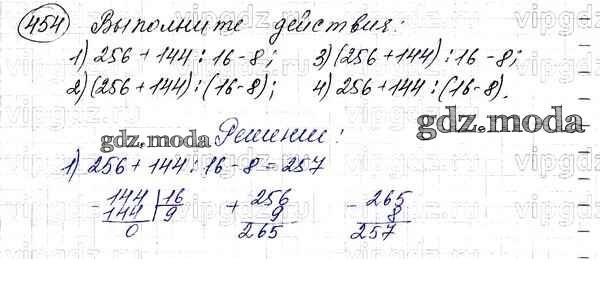 454 Выполните действия:
1) 256 + 144 : 16 - 8; 3) (256 + 144) : 16 - 8;
2) (256 + 144) : (16 - 8); 4) 256 + 144 : (16 - 8).
gdz.moda
gdz.moda
Решение:
1) 256 + 144 : 16 - 8 = 257
- 144 | 16 + 256 - 265
144 | 9 9 8
0 265 257